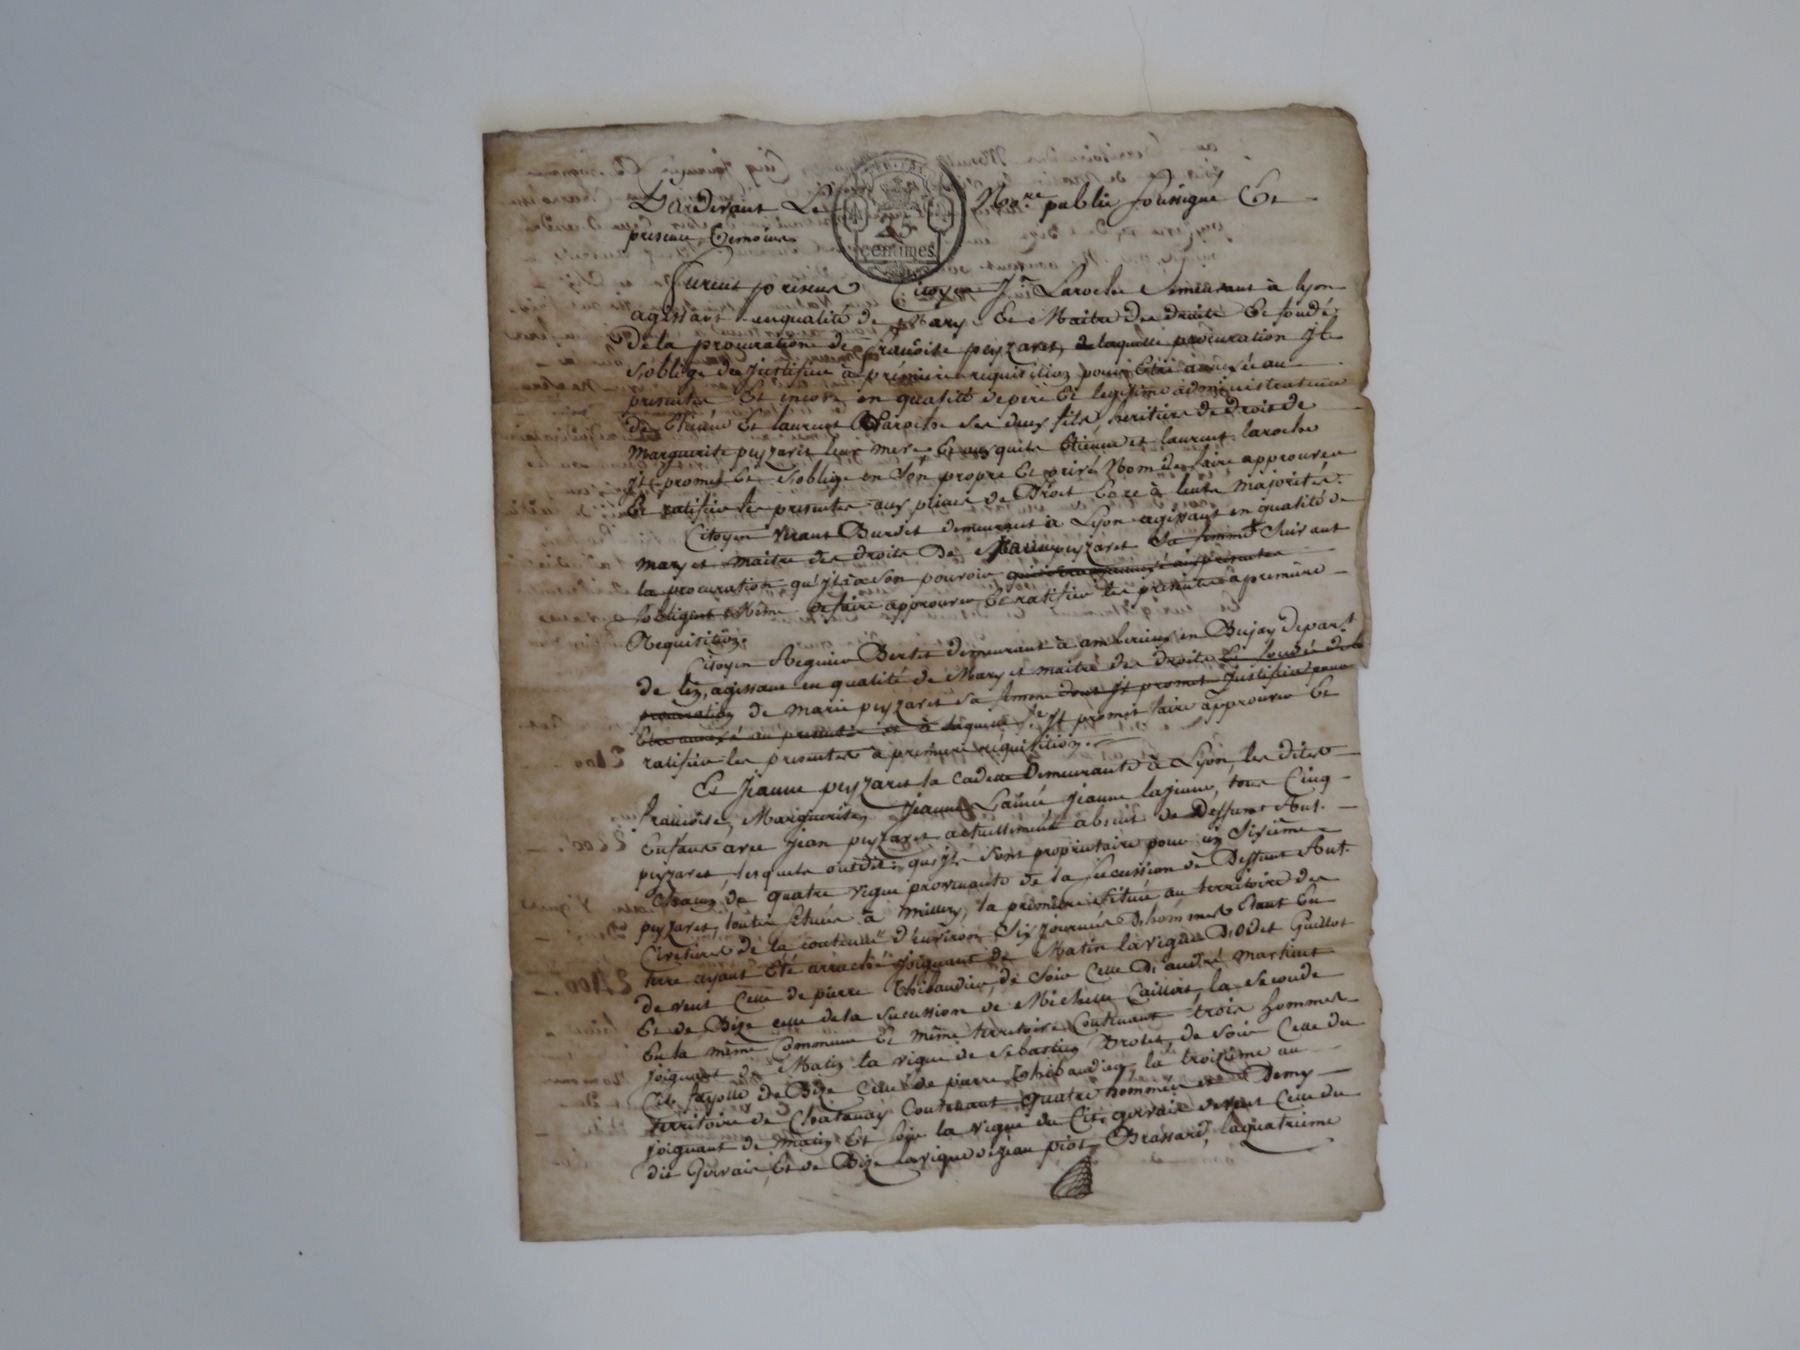 Pardevant Le No.re public soussigné Et
25
centimes
presence Temoins
furent presens Citoyen J.n Laroche demeurant à lyon
agissant enqualité de Mary Et Maitre des droits Et fondé
de la procuration de françoise peyzaret, de laquelle procuration Jl
s'oblige de Justifier à prémière requisition pour Etre annexée au
presentes Et encore en qualité de pere Et legitime administrateur
de Etiéne Et laurent Laroche ses deux fils, heritiers de droit de
Marguerite peyzaret leur mere, Et auxquels Etienne et laurent laroche
Jl promet Et s'oblige en Son propre Et privé Nom de faire approuver
Et ratifier les presentes aux peines de Droit Lors à leurs majorités.
Citoyen Vivant Burdet demeurant à Lyon agissant en qualité de
mary et maitre des droits de peyzaret Sa femme Suivant
la procuration qu'Jl à de Son pouvoir qui sera annexée aux presentes
s'obligent Même de faire approuver Et ratifier les presentes à premiere
Requisition.
Citoyen Reguier Bertet demeurant à amberieux en Bujay depar.t
de l'ein, agissant en qualité de Mary et maitre des droits Et fondée de la
procuration de marie peyzaret sa femme dont Jl promet Justifier pour
Etre annexé au presentes et à laquelle Jl promet faire approuver Et
ratifier les presentes à premiere requisition.
Et Jeanne peyzaret la cadette Demeurante à Lyon, les dites
françoise, Marguerite, Jeanne L'ainée Jeanne lajeune, tous Cinq
Enfans avec Jean peyzaret actuellement absent de Deffunt Ant.
peyzaret, lesquels ont dit qu'Jls sont propriétaire pour un Sixième
Chacun de quatre vigne provenants de la succession de Deffunt Ant.
peyzaret, toutes située à millery, la première située au territoire des
de la contenue d'environ Six journées D'hommes Etant En
terre ayant Eté arraché joignant de Matin la vigne Didet Guillot
de vent Celle de pierre Thibaudier, de Soir Celle D'andré Martinet
Et de Bize celle de la sucession de Michelle Caillot, la Seconde
En la même Commune Et même territoire Contenant trois hommes
joignant de Matin la vigne de Sebastien Drolet, de soir Celle du
Cit. fayolle de Bize Celle de pierre Thibaudier, la troizième au
territoire de Chatanay Contenant quatre hommes et Demy
joignant de matin Et soir la vigne du Cit. gervais de vent Celle du
dit Gervais, Et de Bize la vigne de Jean piot Brassard, la quatrieme